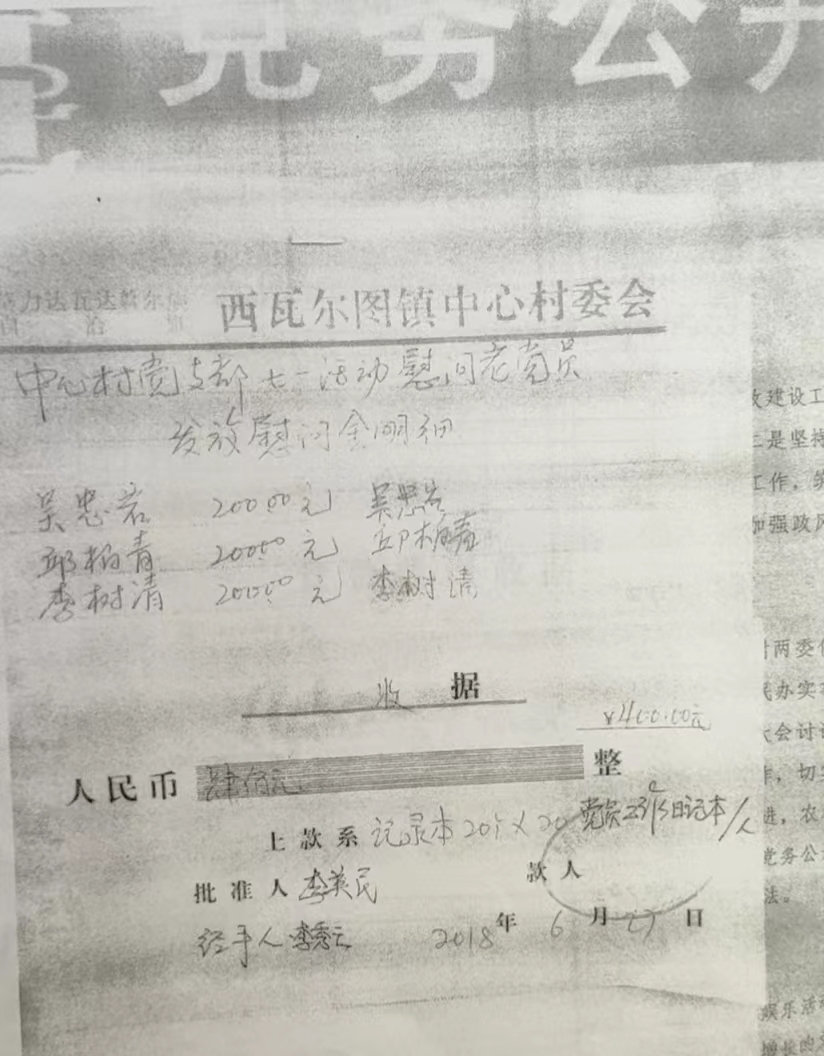 党务公开
莫力达瓦达斡尔族
自治旗
西瓦尔图镇中心村委会
中心村党支部七一活动慰问老党员
发放慰问金明细
吴忠岩 200.00元 吴忠岩
邱柏青 200.00元 邱柏青
李树清 200.00元 李树清
收据
¥400.00元
人民币 肆佰元 整
上款系 记录本20个×20
党员 日记本/人
批准人 李英民 款人
经手人 李秀云 2018年6月27日
建设工
二是坚持
工作,
加强政风
两委
民办实
大会讨
切实
进,农
党务公
法。
娱乐活
增长的